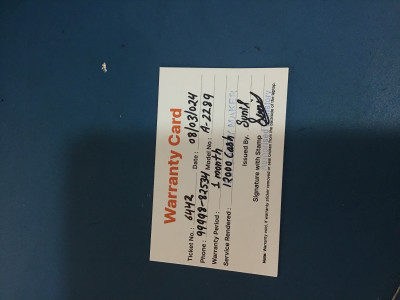 Warranty Card
Ticket No.: 6442 Date: 08/03/024
Phone: 99998-82534 Model No: A-2289
Warranty Period: 1 month
Service Rendered: 12000 Cash
Issued By. Sunil
Signature with Stamp
Note: Warranty void, if warranty sticker removed or